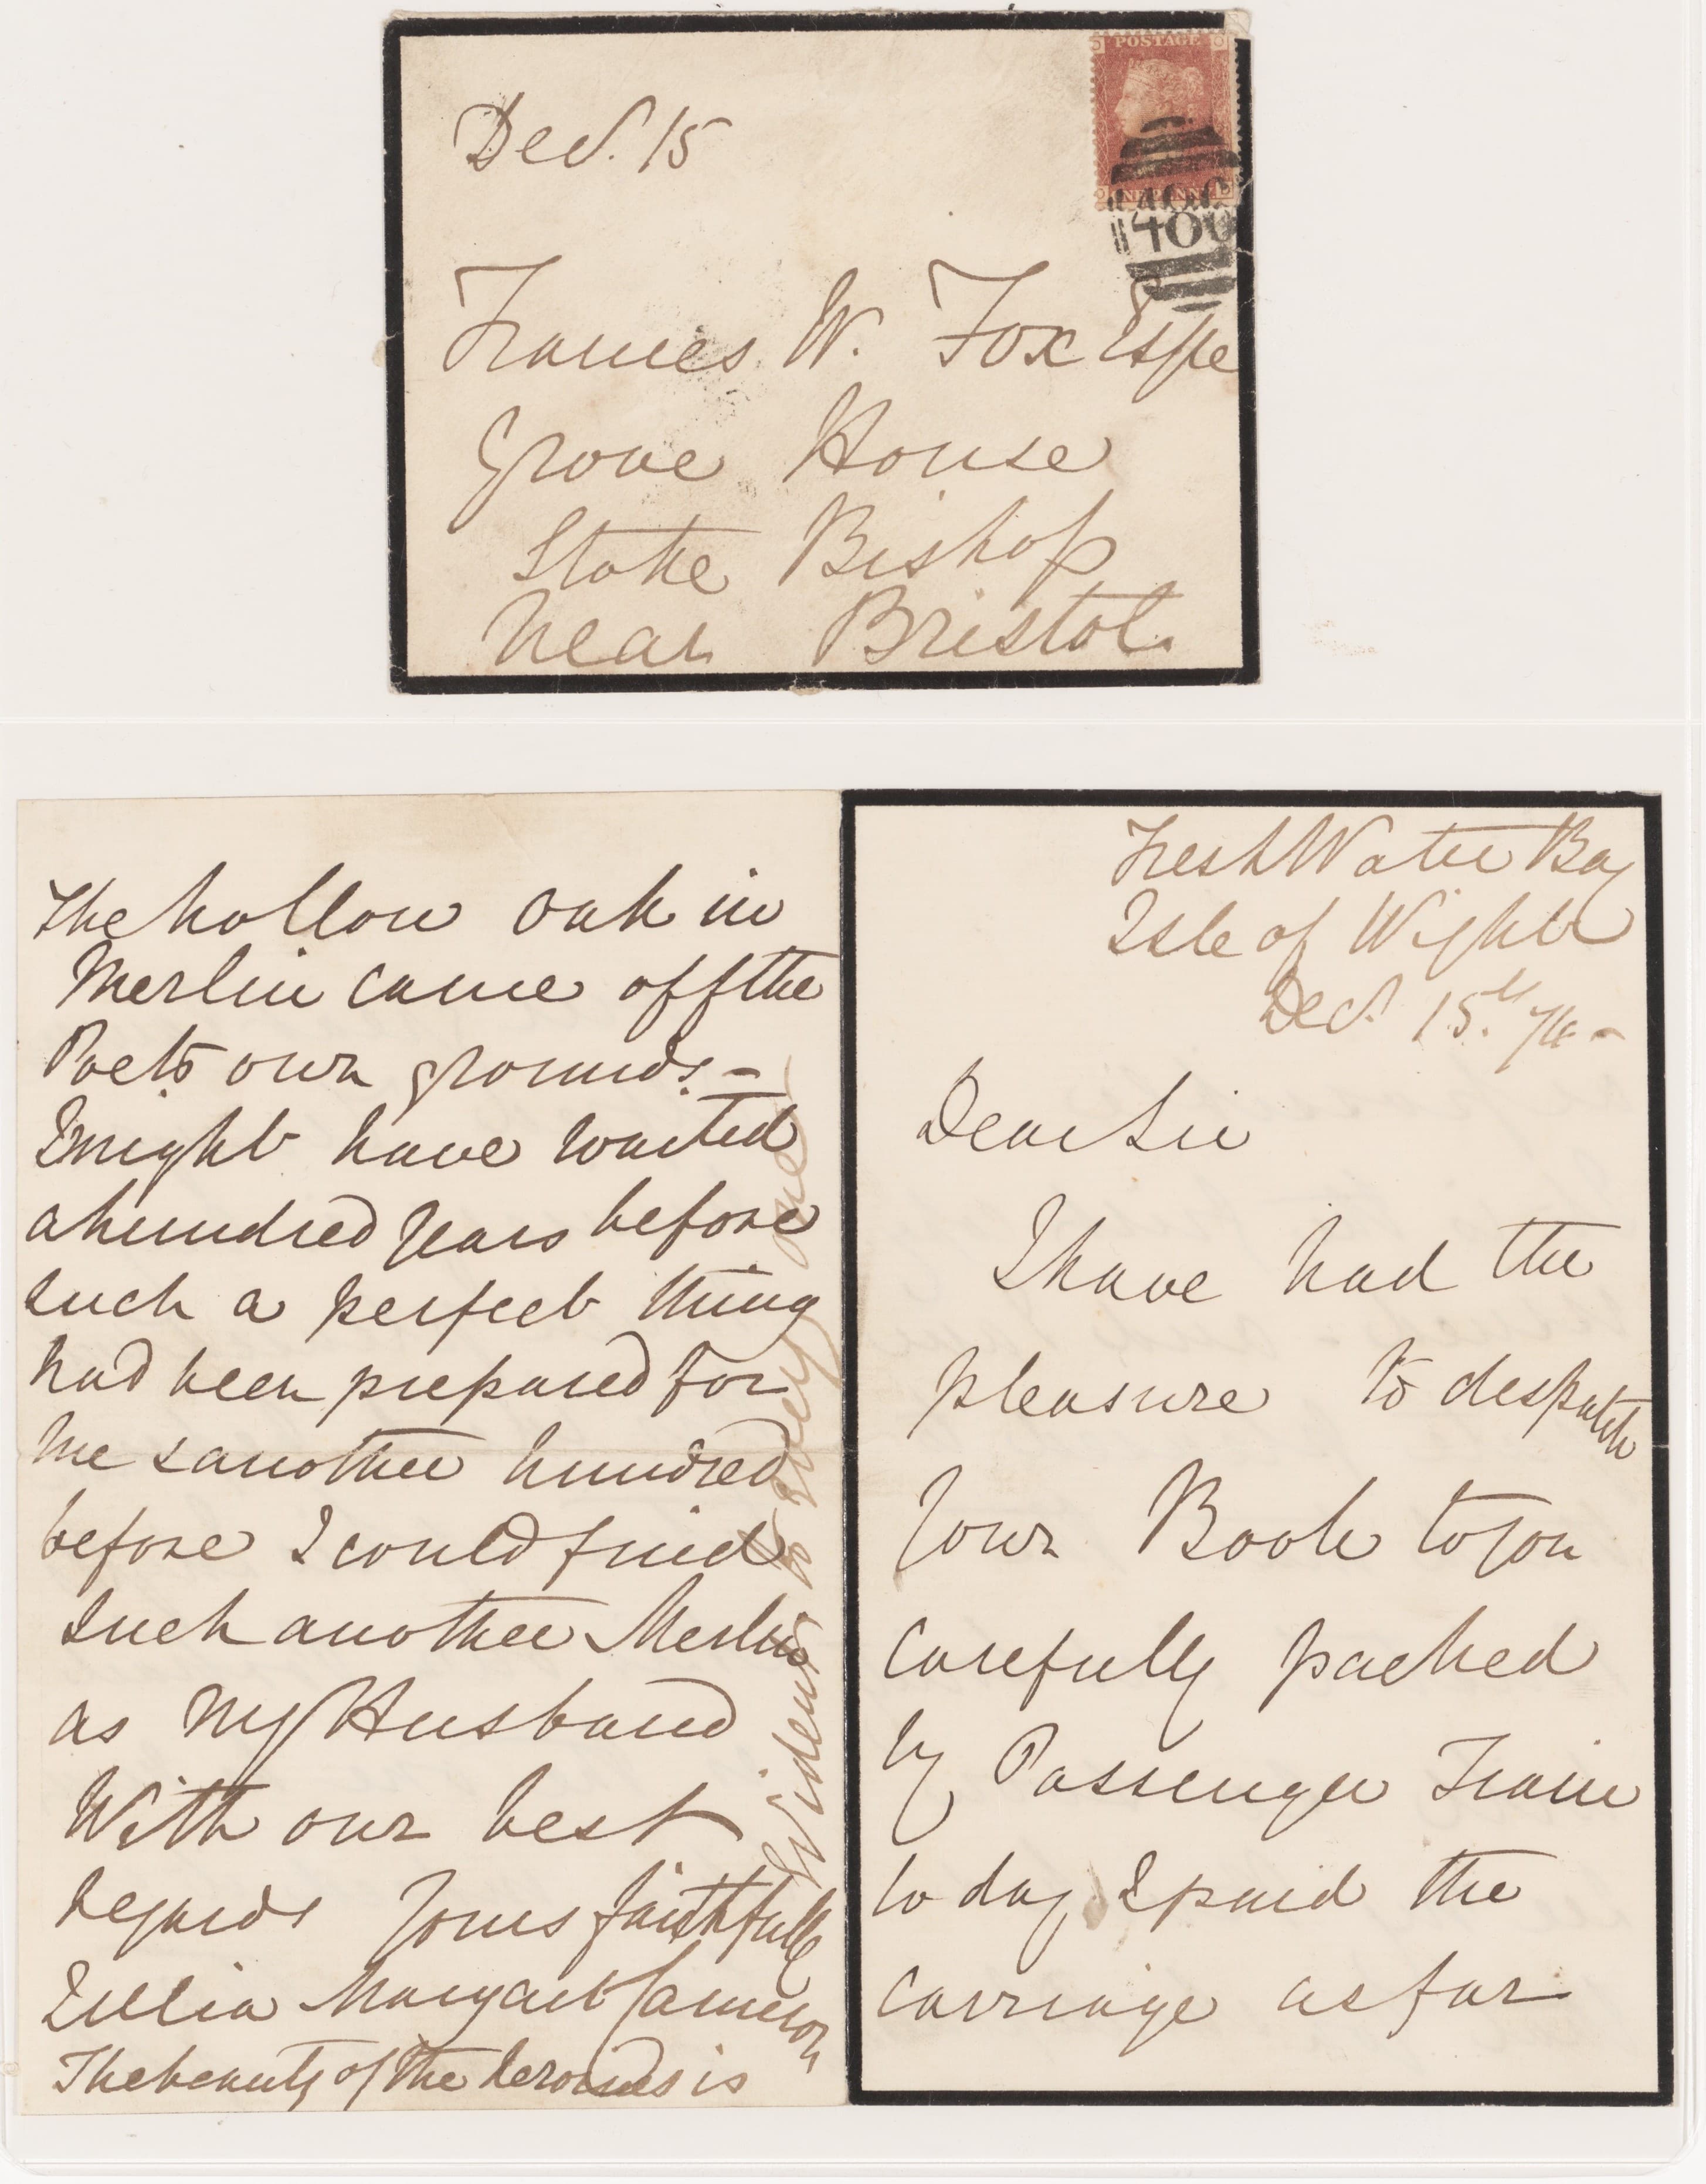 Dec. 15
POSTAGE
ONE PENNY
400
Frances W. Fox Esqre
Grove House
Stoke Bishop
Near Bristol.
The hollow oak in
Merlin came off the
Poets own grounds. –
I might have waited
a hundred years before
such a perfect thing
had been prepared for
me & another hundred
before I could find
such another Merlin
as my Husband
With our best
regards Yours faithfully
Julia Margaret Cameron
The beauty of the heroines is
Evident to every one
Fresh Water Bay
Isle of Wight
Dec. 15th. 74 –
Dear Sir
I have had the
pleasure to despatch
Your Book to you
carefully packed
by Passenger Train
to day, I paid the
carriage as far